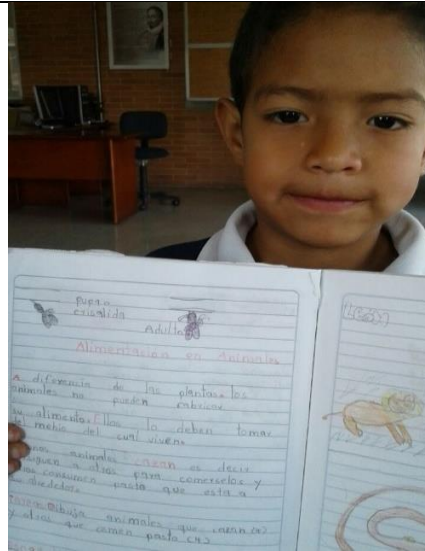 pupa o
crisalida
Adulto
Alimentación en Animales
A diferencia de las plantas los
animales no pueden fabricar
su alimento. Ellos lo deben tomar
del mehio del cual viven.
animales cazan es decir
a otros para comerselos y
consumen pasto que esta a
alrededor.
Dibuja animales que cazan (4)
y otros que comen pasto (4)
León